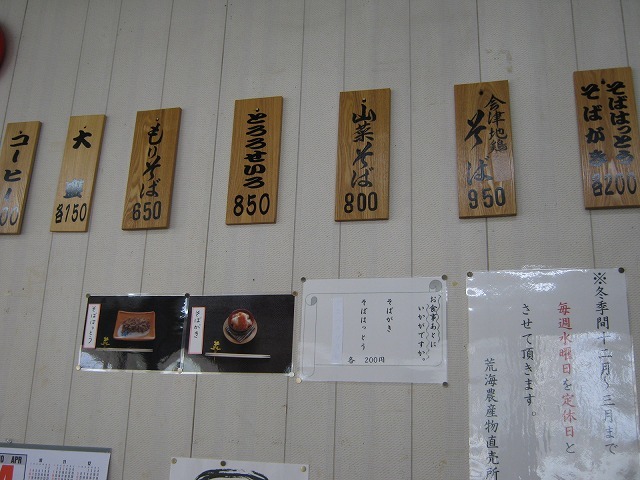 そばはっとう
そばがき
各200
会津地鶏
そば
950
山菜そば
800
とろろせいろ
850
もりそば
650
大
各150
コーヒー
00
※冬季間十二月～三月まで
毎週水曜日を定休日と
させて頂きます。
荒海農産物直売所
お食事あとに
いかがですか。
そばがき
そばはっとう
各 200円
そばがき
そばはっとう
APR